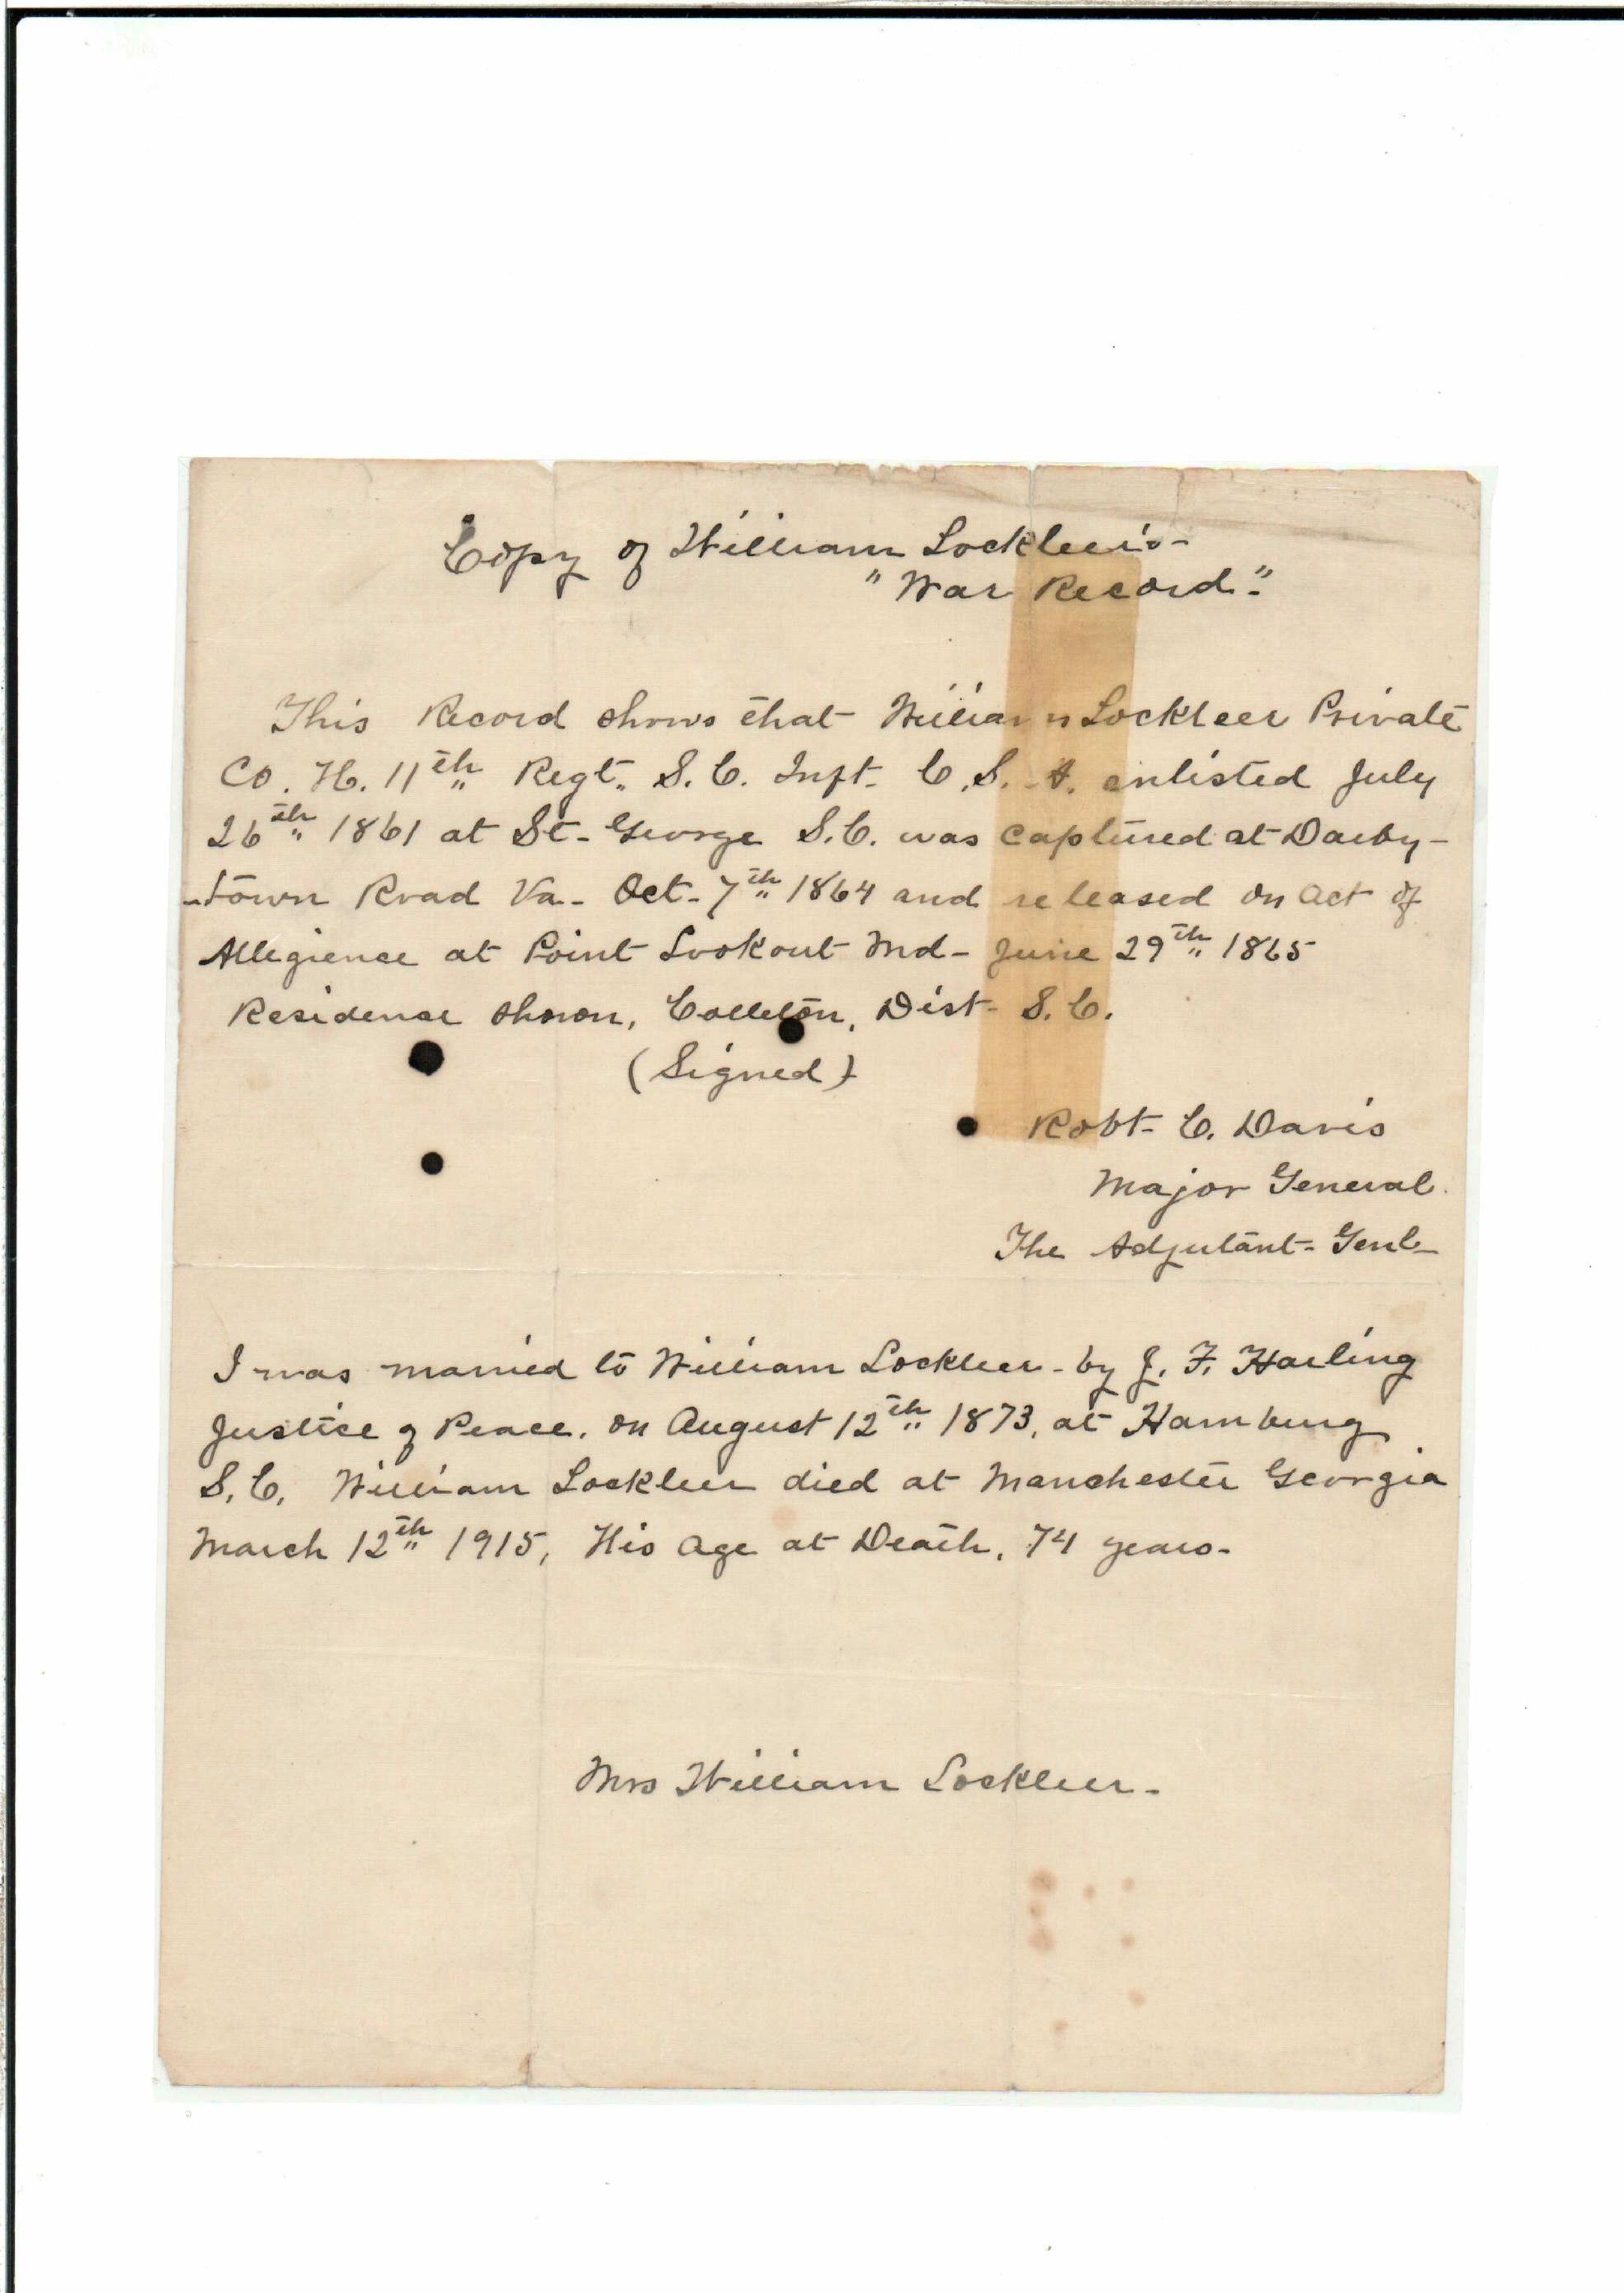 Copy of William Lockleer's-
"War Record."
This Record shows that William Lockleer Private
Co. H. 11th Regt. S. C. Inft. C. S. A. enlisted July
26th 1861 at St. George S.C. was captured at Darby-
-town Road Va. Oct. 7th 1864 and released on act of
Allegience at Point Lookout Md- June 29th 1865
Residence shown, Colleton, Dist. S. C.
(Signed)
Robt. C. Davis
Major General.
The Adjutant. Genl-
I was married to William Lockleer- by J. F. Harling
Justice of Peace. on August 12th 1873, at Hamburg
S. C. William Lockleer died at Manchester Georgia
March 12th 1915, His Age at Death. 74 years-
Mrs William Lockleer-